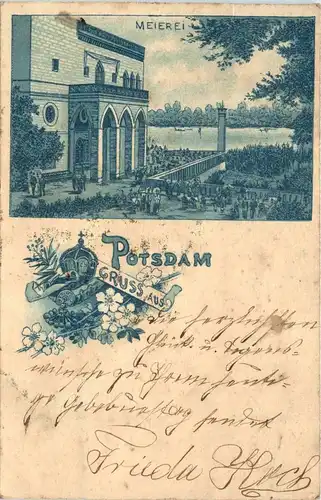 MEIEREI
POTSDAM
GRUSS AUS
Die herzlichsten
Glück- u. Segens-
wünsche zu Ihrem heuti-
ge Geburtstag sendet
Frieda Koch